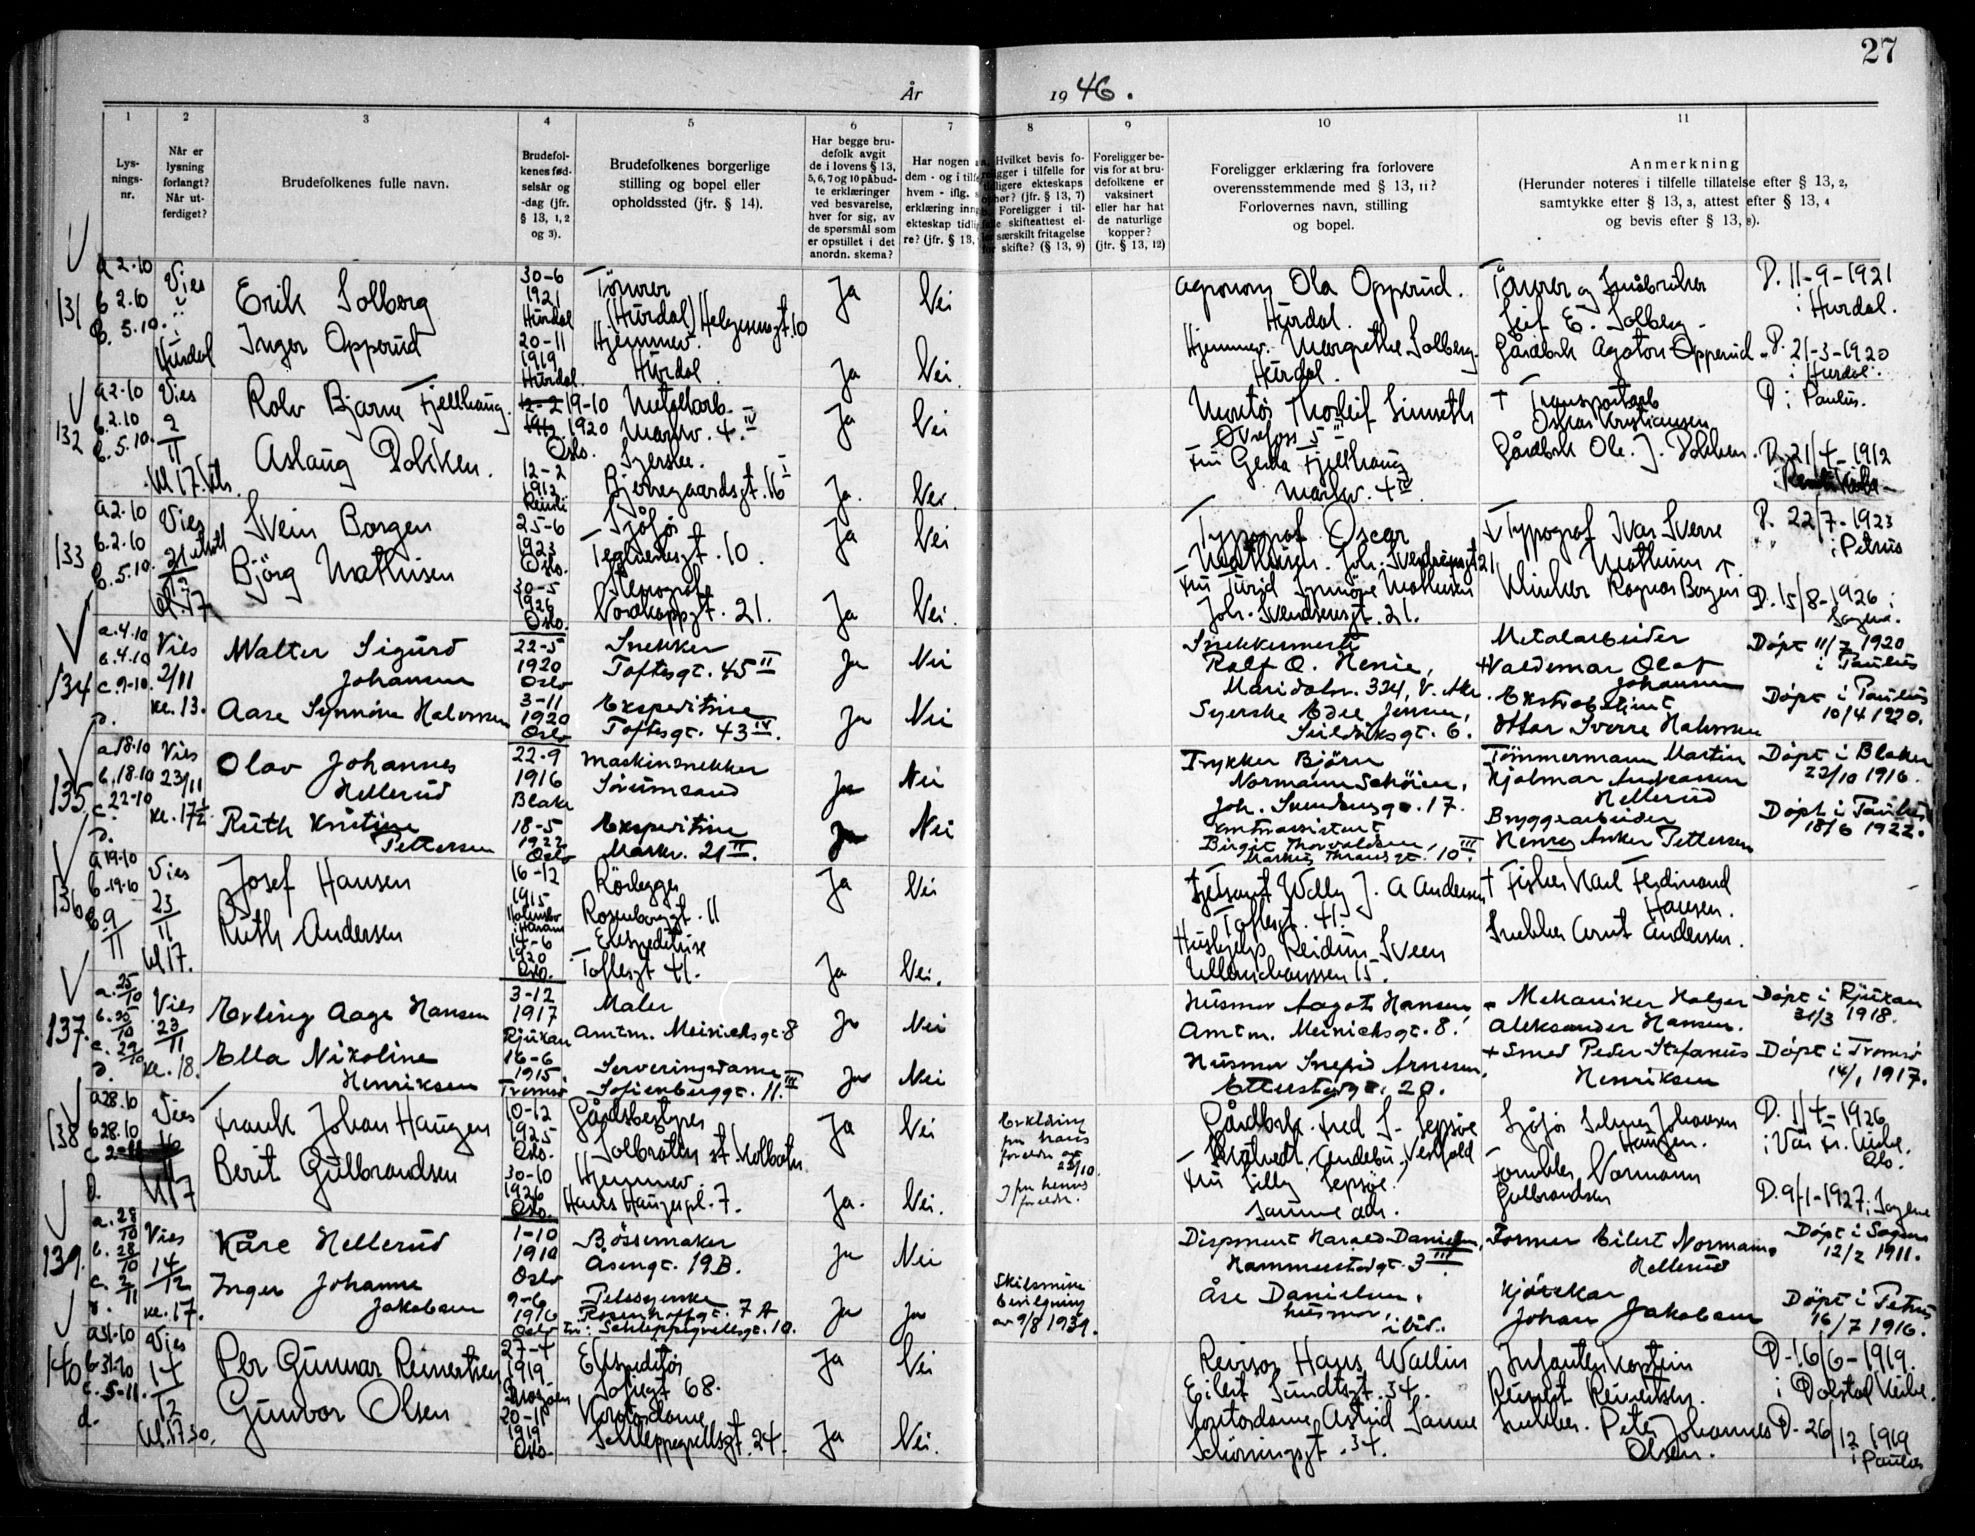 27
År 1946.
1
2
3
4
5
6
7
8
9
10
11
Lys-
nings-
nr.
Når er
lysning
forlangt?
Når ut-
ferdiget?
Brudefolkenes fulle navn.
Brudefol-
kenes fød-
selsår og
-dag (jfr.
§ 13, 1, 2
og 3).
Brudefolkenes borgerlige
stilling og bopel eller
opholdssted (jfr. § 14).
Har begge bru-
defolk avgit
de i lovens § 13,
5, 6, 7 og 10 påbud-
te erklæringer
ved besvarelse,
hver for sig, av
de spørsmål som
er opstillet i det
anordn. skema?
Har nogen a
dem - og i tilfe
hvem - iflg.
erklæring inng
ekteskap tidli
re? (jfr. § 13,
Hvilket bevis fo-
religger i tilfelle for
tidligere ekteskaps
ophør? (jfr. § 13, 7)
Foreligger i til-
felle skifteattest el-
ler særskilt fritagelse
for skifte? (§ 13, 9)
Foreligger be-
vis for at bru-
defolkene er
vaksinert
eller har hat
de naturlige
kopper?
(jfr. § 13, 12)
Foreligger erklæring fra forlovere
overensstemmende med § 13, 11?
Forlovernes navn, stilling
og bopel.
Anmerkning
(Herunder noteres i tilfelle tillatelse efter § 13, 2,
samtykke efter § 13, 3, attest efter § 13, 4
og bevis efter § 13, 8).
131
a 2.10
b 2.10
c. 5.10.
Vies
i
Hurdal
Erik Solberg
Inger Opperud
30-6
1921
Hurdal
20-11
1919
Hurdal.
Tømrer
(Hurdal) Helgesensgt. 10
Hjemmev.
Hurdal
Ja
Ja
Nei
Nei.
Agronom Ola Opperud.
Hurdal.
Hjemmev. Margrethe Solberg.
Hurdal.
Tømrer og Småbruker
Leif E. Solberg.
Gårdbrk Agaton Opperud
D. 11-9-1921
i Hurdal.
D. 21-3-1920
i Hurdal.
132
a 2.10
b. 2.10
c. 5.10.
Vies
2/11
kl 17.
Rolv Bjarne Fjellhaug.
Aslaug Dokken.
19-10
1920
Oslo.
12-2
1912
Metallarb.
Markv. 4. IV
Syerske.
Bjerregaardsgt. 16 I
Ja
Ja.
Nei
Nei.
Montør Thorleif Simseth
Øvrefoss 5 II
Fru Gerda Fjellhaug
Markv. 4 IV
† Transportarb
Oskar Kristiansen
Gårdbrk Ole. J. Dokken.
D i Paulus.
D. 21/4-1912
133
a 2.10
b. 2.10
c. 5.10.
Vies
21
kl. 17
Svein Borgen
Bjørg Mathisen
25-6
1923
Oslo.
30-5
1926
Oslo.
Sjåfør
Teglverksgt. 10.
Stenograf
Nordkappgt. 21.
Ja
Ja
Nei
Nei.
Typograf Oscar
Mathisen. Joh. Svendsensgt 21
Fru Turid Synnøve Mathisen
Joh. Svendsensgt. 21.
Typograf Ivar Sverre
Mathisen
Ragnar Borgen
D. 22/7-1923
i Petrus
D. 15/8-1926 i
Sagene.
134
a. 4.10
b. 4.10
c. 9-10.
d.
Vies
2/11
kl. 13.
Walter Sigurd
Johansen
Aase Synnöve Halvorsen
22-5
1920
Oslo
3-11
1920
Oslo
Snekker
Toftesgt. 45 II
Ekspeditrise
Toftesgt. 43 IV.
Ja
Ja
Nei
Nei
Snekkermester
Rolf O. Henie,
Maridalsv. 324, V. Aker.
Syerske Edel Jensen,
Seilduksgt. 6.
Metalarbeider
+ Valdemar Olaf
Johansen
Ekstrabetjent
Ottar Sverre Halvorsen
Döpt 11/7 1920
i Paulus
Döpt i Paulus
10/4 1920.
135
a. 18.10
b. 18.10
c. 22-10
d.
Vies
23/11
kl. 17½
Olav Johannes
Hellerud
Ruth Kristine
Pettersen
22-9
1916
Blaker
18-5
1922
Oslo
Maskinsnekker
Sørumsand
Ekspeditrise
Markv. 21 II.
Ja
Ja
Nei
Nei
Trykker Björn
Normann Schöien,
Joh. Svendsensgt. 17.
Kontorassistent
Birgit Thorvaldsen,
Markus Thranesgt. 10 III.
Tömmermann Martin
Hjalmar Andreassen
Hellerud
Bryggearbeider
Henry Anker Pettersen
Döpt i Blaker
22/10 1916.
Döpt i Paulus
18/6 1922.
136
a 19.10
b. 19.10
c. 9/11
Vies
23/11
kl 17.
Josef Hansen
Ruth Andersen
16-12
1915
14-6
1920
Oslo.
Rørlegger
Rosenborggt. 11
Ekspeditrise
Toftesgt 41.
Ja
Ja
Nei
Nei.
Willy J. A Andersen
Toftesgt. 41.
Hushjelp Reidun Sveen
15.
† Fisker Karl Ferdinand
Hansen.
Snekker Arnt Andersen.
137.
a. 25/10
b. 25/10
c. 29/10
d.
Vies
23/11
kl. 18.
Erling Aage Hansen
Ella Nikoline
Henriksen
3-12
1917
Rjukan
16-6
1915
Tromsö
Maler
Amtm. Meinichsgt. 8
Serveringsdame
Sofienberggt. 11. III
Ja
Ja
Nei
Nei
Husmor Aagot Hansen
Amtm. Meinichsgt. 8.
Husmor Ingrid Arnesen,
Etterstadgt. 20.
Mekaniker Holger
Aleksander Hansen.
+ Smed Peder Stefanus
Henriksen
Döpt i Rjukan
31/3 1918.
Döpt i Tromsö
14/1 1917.
138
a 28.10
b 28.10
c
d.
Vies
16/11
kl 17
Frank Johan Haugen
Berit Gulbrandsen
10-12
1925
Oslo.
30-10
1926
Oslo.
Gårdsbestyrer
Solbråten st. Kolbotn
Hjemmev.
Hans Haugespl. 7.
Ja
Ja.
Nei
Nei.
Erklæring
fra hans
foreldre av
22/10.
fra hennes
foreldre.
Gårdbrk. Fred S. Sepsøe
Andebu, Vestfold
Fru Lilly Sepsøe.
samme adr.
Sjåfør Johansen
Haugen.
Normann
Gulbrandsen
D. 1/4-1926
i Vår Fr. kirke.
Oslo.
D. 9/1-1927 i Sagene
139.
a. 28/10
b. 28/10
c. 2/11
d.
Vies
14/12
kl. 17.
Kåre Hellerud
Inger Johanne
Jakobsen
1-10
1910
Oslo
9-6
1916
Oslo
Bössemaker
Åsengt. 19B.
Pelssyerske
Rosenhoffgt. 7 A
tv: Schleppegrellsgt. 10.
Ja
Ja
Nei
Ja
Skilsmisse
bevilgning
av 9/8 1939.
Disponent Harald Danielsen,
Hammerstadgt. 3 III.
Åse Danielsen,
husmor,
ibid.
Former Eilert Normann
Hellerud
Kjörekar
Johan Jakobsen
Döpt i Sagene
12/2 1911.
Döpt i Petrus
16/7 1916.
140
a 31.10
b 31.10
c. 5-11.
d.
Vies
14/12
kl. 17 30.
Per Gunnar Reinertsen
Gunvor Olsen
27-4
1919
Mosjøen
20-11
1919
Oslo.
Ekspeditør
Sofiesgt 68.
Kontordame
Schleppegrellsgt. 24.
Ja
Ja
Nei
Nei.
Revisor Hans Wallin
Eilert Sundtsgt. 34.
Kontordame Astrid Sanne
Schøningsgt. 34.
Reinert Reinertsen.
Snekker. Peter Johannes
Olsen.
D. 16/6-1919.
i Dolstad kirke.
D. 26/12 1919
i Paulus